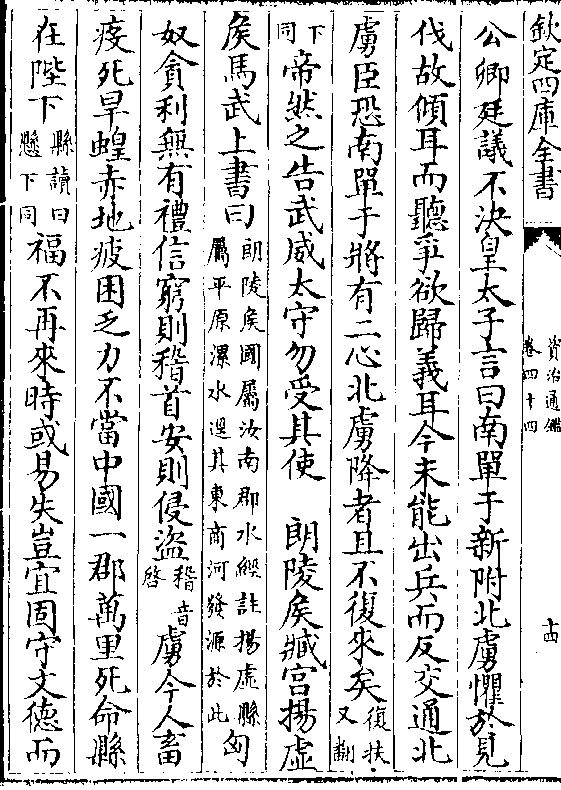 欽定四庫全書
資治通鑑
卷四十四
十四
公卿廷議不決皇太子言曰南單于新附北虜懼於見
伐故傾耳而聽爭欲歸義耳今未能出兵而反交通北
虜臣恐南單于將有二心北虜降者且不復來矣復扶
又翻
下
同帝然之告武威太守勿受其使 朗陵侯臧宮揚虛
侯馬武上書曰朗陵侯國屬汝南郡水經註揚虛縣
屬平原漯水逕其東商河發源於此匈
奴貪利無有禮信窮則稽首安則侵盜稽音
啓虜今人畜
疫死旱蝗赤地疲困乏力不當中國一郡萬里死命縣
在陛下縣讀曰
懸下同福不再來時或易失豈宜固守文德而